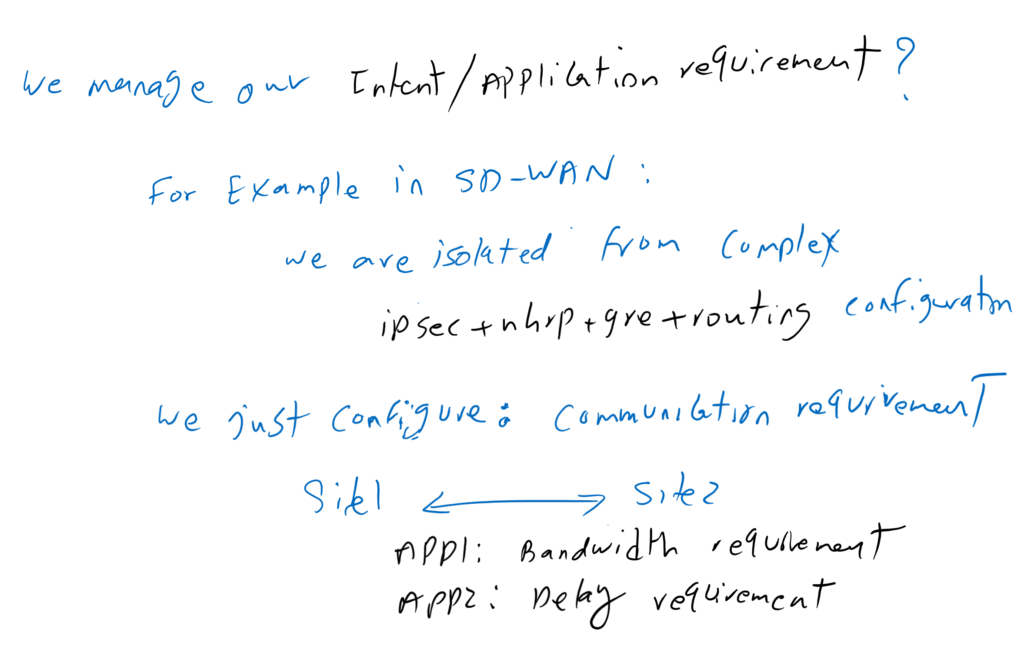 We manage our Intent/Application requirement?
For Example in SD-WAN:
we are isolated from complex
ipsec+nhrp+gre+routing configuration
we just configure: communication requirement
Site1 <-----> Site2
APP1: Bandwidth requirement
APP2: Delay requirement